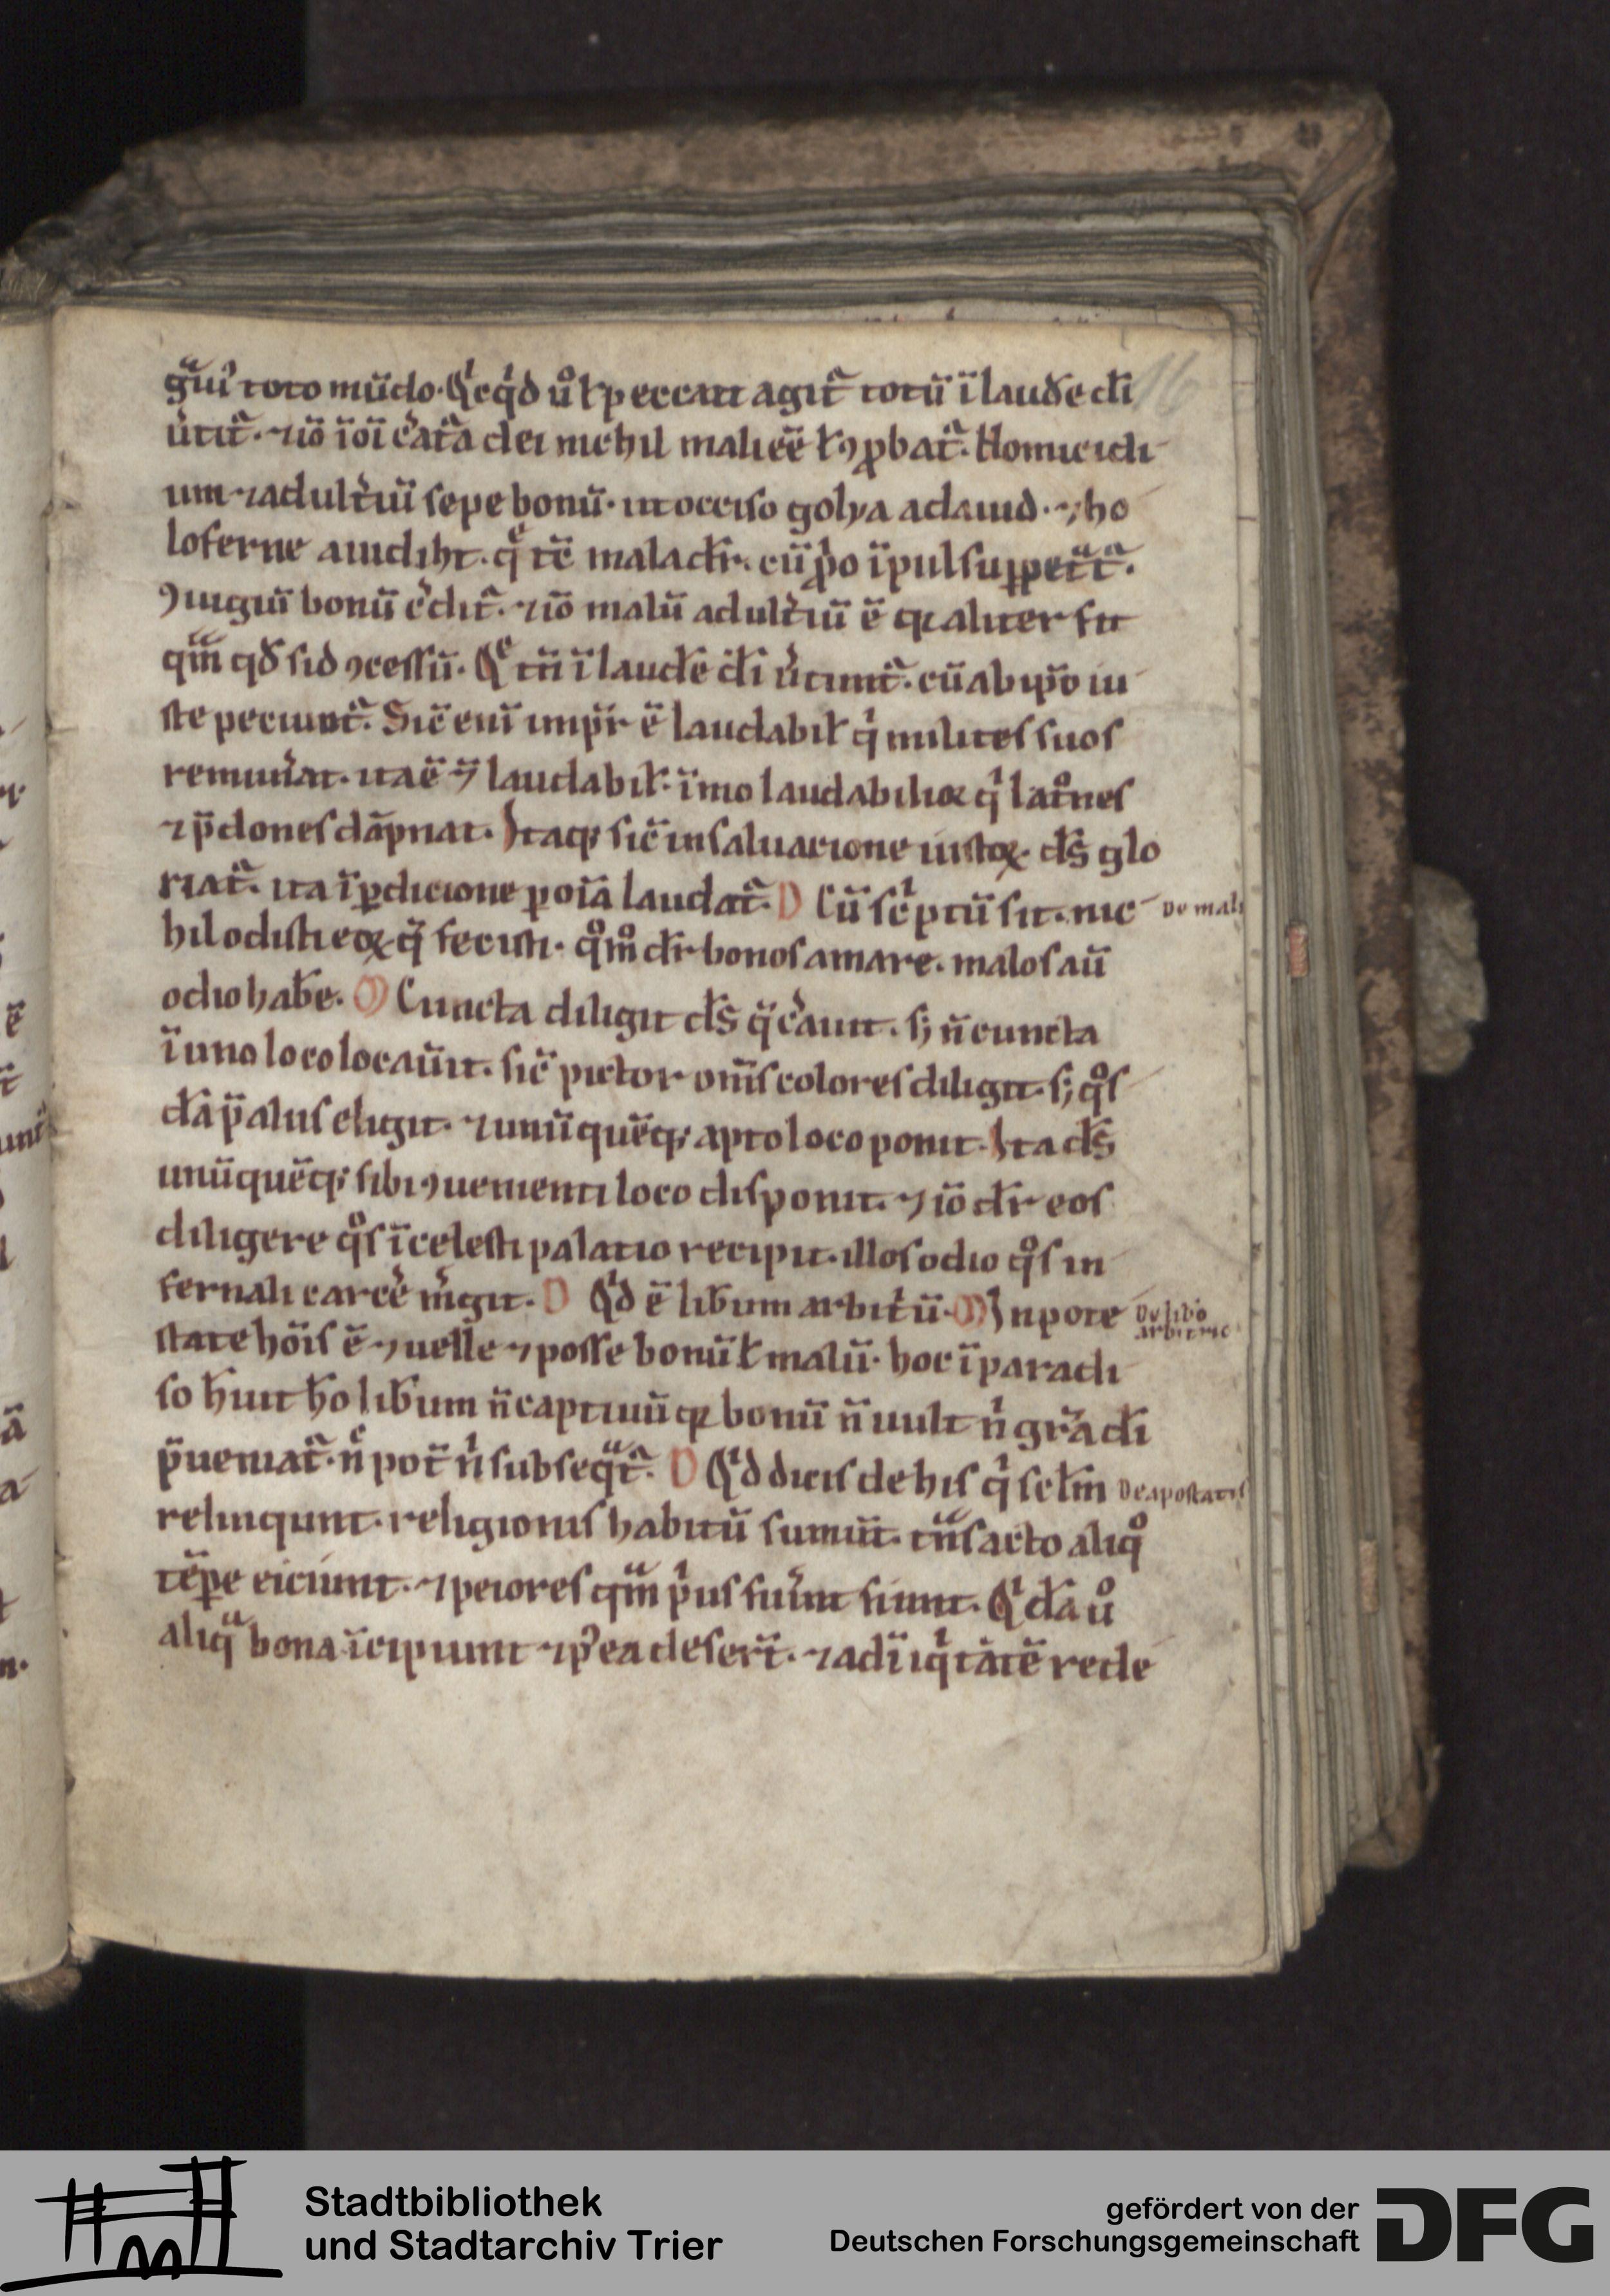 gͣuiͥ toto mūdo. Qͥcqͥd uͦ ł peccati agitᷓ totū ī laude d̄i
u̓titᷓ. ⁊ iō ī oī c̓atᷓa dei nichil mali eē ꝉ ꝯp̱batᷓ. Homicidi
um ⁊ adult̓iū sepe bonū. ut occiso golya a dauid. ⁊ ho
loferne a iudiht. qͤ tc̄ mala dr̄. cū p̱o īpulsu ꝑpet̄tᷓ.
ꝯiugiū bonū c̓ditᷓ. ⁊ iō malū adult̓iū ē qꝛ aliter fit
qͣm qd̄ sid ꝯcessū. Qͤ tn̄ ī laude d̄i u̓tuntᷓ. cū ab ip̄o iu
ste peciuntᷓ. Sic̄ enī imp̄r ē laudabił qͥ milites suos
remun̓at. ita ē ⁊ laudabił. īmo laudabilioꝛ qͥ latͦnes
⁊ p̄dones dāpnat. Itaqꝫ sic̄ in saluatione iustoꝝ ds̄ glo
riatᷓ. ita ī ꝑdicione ꝑ oīa laudatᷓ. D Cū sc̓ptū sit. nic
De mali
hil odisti eoꝝ q̄ fecisti. qͦmͦ dr̄ bonos amare. malos aū
odio habe̅. M Cuncta diligit ds̄ q̄ c̓auit. sꝫ n̄ cuncta
ī uno loco locau̓it. sic̄ pictor om̄s colores diligit. sꝫ qͦs
dā p̄ aliis eligit. ⁊ unūquēqꝫ apto loco ponit. Ita ds̄
unūquēqꝫ sibi ꝯuenienti loco disponit. ⁊ iō dr̄ eos
diligere qͦs ī celesti palatio recipit. illos odio qͦs in
fernali carce̓ m̓git. D Qͥd ē lib̄um arbitͥū. M In pote
De lib̄o
arbitrio
state hoīs ē ⁊ uelle ⁊ posse bonū ł malū. hoc ī paradi
so h̄uit ho lib̄um n̄ captiuū qꝛ bonū n̄ uult nͥ gr̄a d̄i
p̄ueniatᷓ. nͨ pot̄ nͥ subseqͣtᷓ. D Qͥd dicis de his qͥ sc̄lm
De apostatis
relinqunt. religionis habitū sumūt. tn̄sacto aliqͦ
tēpe eiciunt. ⁊ peiores qͣm pͥus fu̓int fiunt. Qͥdā uͦ
aliqͣ bona īcipiunt ⁊ pꝰ ea deserūt. ⁊ ad īiqͥtātē rede
16
Stadtbibliothek
und Stadtarchiv Trier
gefördert von der
Deutschen Forschungsgemeinschaft
DFG